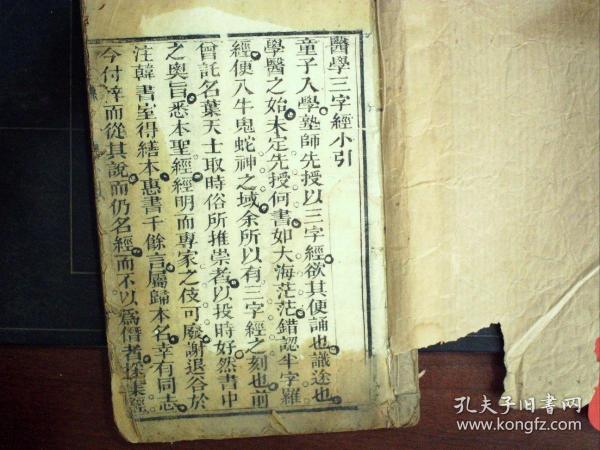 醫學三字經小引
童子入學塾師先授以三字經欲其便誦也識途也
學醫之始未定先授何書如大海茫茫錯認半字羅
經便入牛鬼蛇神之域余所以有三字經之刻也前
曾託名葉天士取時俗所推崇者以投時好然書中
之奧旨悉本聖經經明而專家之伎可廢謝退谷於
注韓書室得繕本惠書千餘言屬歸本名幸有同志
今付梓而從其說而仍名經而不以為僭者採集經
孔夫子旧书网
www.kongfz.com